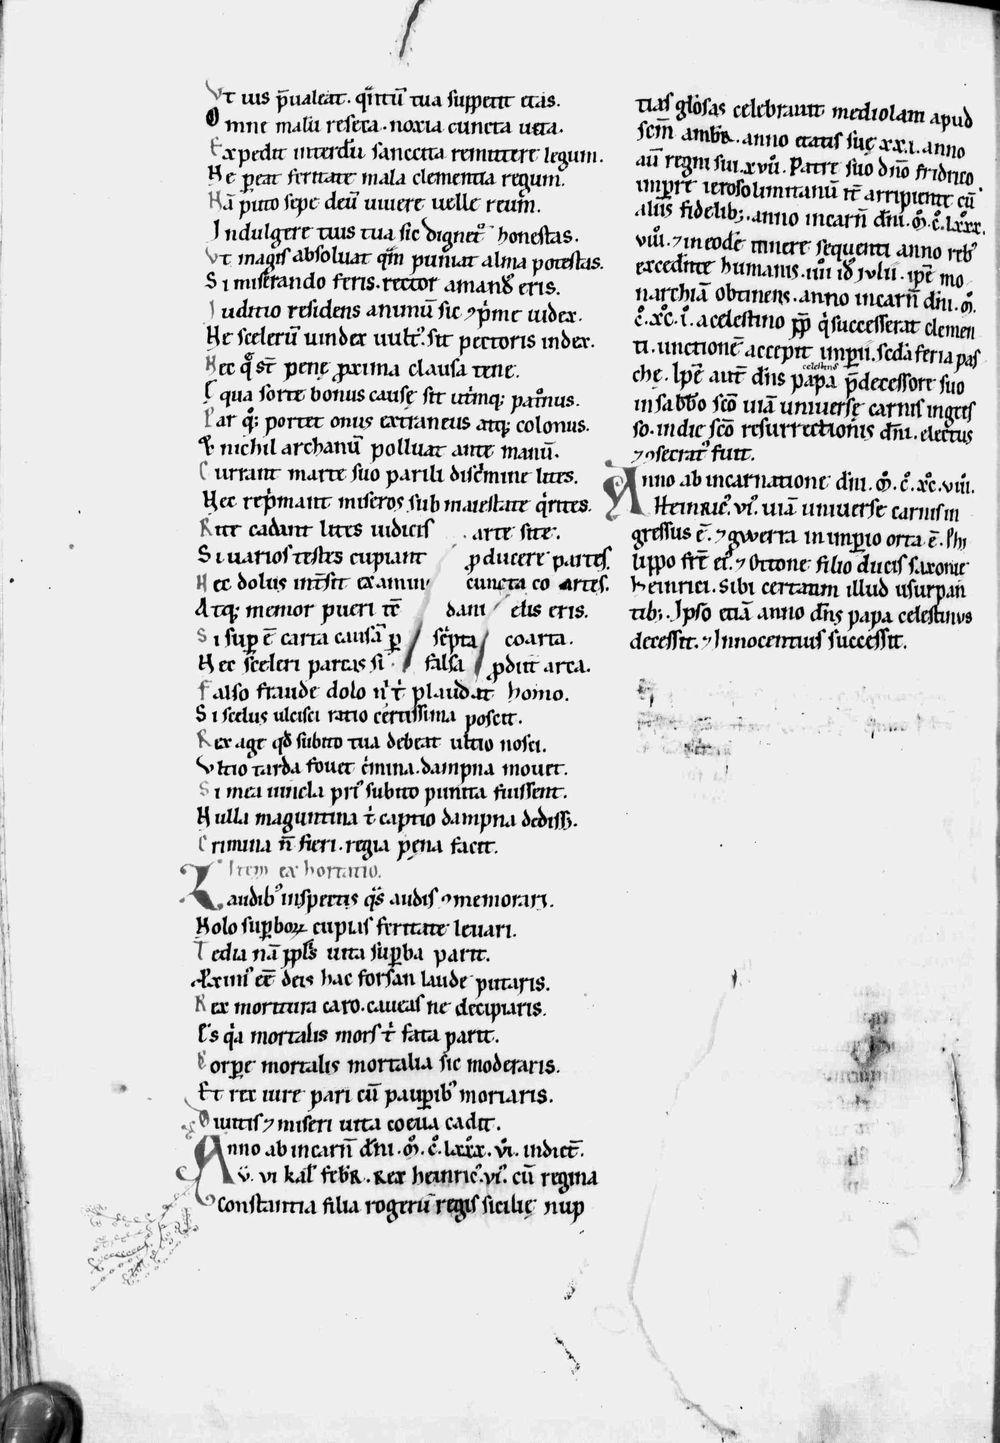 Vt uis p̄ualeat. q̄ntū tua suppetit etas.
Omne malū reseca. noxia cuncta ueta.
Expedit interdū sanccita remittere legum.
Ne p̱eat feritate mala clementia regum.
Nā puto sepe deū uiuere uelle reum.
Indulgere tuis tua sic dignet᷒ honestas.
Vt magis absoluat q̄m puniat alma potestas.
Si miserando feris. rector amand᷒ eris.
Iuditio residens animū sic ꝯp̄me iudex.
Ne scelerū uindex uult᷒ sit pectoris index.
Nec q̊ sī penę ꝓxima clausa tene.
E qua sorte bonus causę sit utimqꝫ pat̊nus.
Par q̊ꝫ portet onus extraneus atqꝫ colonus.
nichil archanū polluat ante manū.
Currant marte suo parili disc̄mine lites.
Nec rep̄mant miseros sub maiestate q̄rites.
Rite cadant lites iudicis arte site.
Si uarios testes cupiant ꝓducere partes.
Nec dolus int̄sit examini cuncta co artes.
Atqꝫ memor pueri tc̄ dani elis eris.
Si suꝑ ē carta causā ꝑ sc̄pta coarta.
Nec sceleri parcas si falsa ꝓdit arca.
Falso fraude dolo n̄ t̄ plaudat homo.
Si scelus ulcisci ratio certissima poscit.
Rex age qd̄ subito tua debeat ultio nosci.
Vltio tarda fouet c̄mina. dampna mouet.
Si mea uincla pri᷒ subito punita fuissent.
Nulla maguntina t̄ captio dampna dediss̄.
Crimina n̄ fieri. regia pena facit.
Item exhortatio.
Laudib᷒ inspectis q̄s audis ꝯmemorari.
Nolo suꝑboꝝ cupias feritate leuari.
Tedia nā pp̄ls uita suꝑba parit.
eē deis hac forsan laude putaris.
Rex moritura caro. caueas ne decipiaris.
Es q̄a mortalis mors t̄ fata parit.
Corpe mortalis mortalia sic moderaris.
Et rex iure pari cū pauꝑib᷒ moriaris.
Diuitis ⁊ miseri uita coeua cadit.
Anno ab incarn̄ dn̄i. M̊. C̊. Lxxx. vi. indict̄.
v̄. vi kal̄ febꝛ. Rex heinric᷒ vi᷒. cū regina
Constantia filia rogerii regis sicilię nup
tias gl̊osas celebrauit mediolani apud
sc̄m ambꝛ. anno etatis suę xxi. anno
aū regni sui. xvii. Patre suo dn̄o fridrico
imp̄re ierosolimitanū it̄ arripiente cū
aliis fidelibꝫ. anno incarn̄ dn̄i. M̊. C̊. Lxxx.
viiii. ⁊ in eodē itinere sequenti anno reb᷒
excedente humanis. iiii id᷒ iulii. ip̄e mo
narchiā obtinens. anno incarn̄ dn̄i. M̊.
C̊. xc̊. i̊. a celestino p̄p q̄ successerat clemen
ti. unctionē accepit imꝑii. sedā feria pas
chę. Ip̄e aut̄ dn̄s papa celestinus p̄decessore suo
in sabb̄o sc̄o uiā uniuerse carnis ingres
so. in die sc̄o resurrectionis dn̄i. electus
⁊ ꝯsecrat᷒ fuit.
Anno ab incarnatione dn̄i. M̊. C̊. xc̊. viii.
Heinric᷒. vi᷒. uiā uniuerse carnis in
gressus ē. ⁊ gwerra in imꝑio orta ē. Phi
lippo frē ei᷒. ⁊ Ottone filio ducis saxonie
heinrici. sibi certatim illud usurpan
tibꝫ. Ipso etiā anno dn̄s papa celestinus
decessit. ⁊ Innocentius successit.